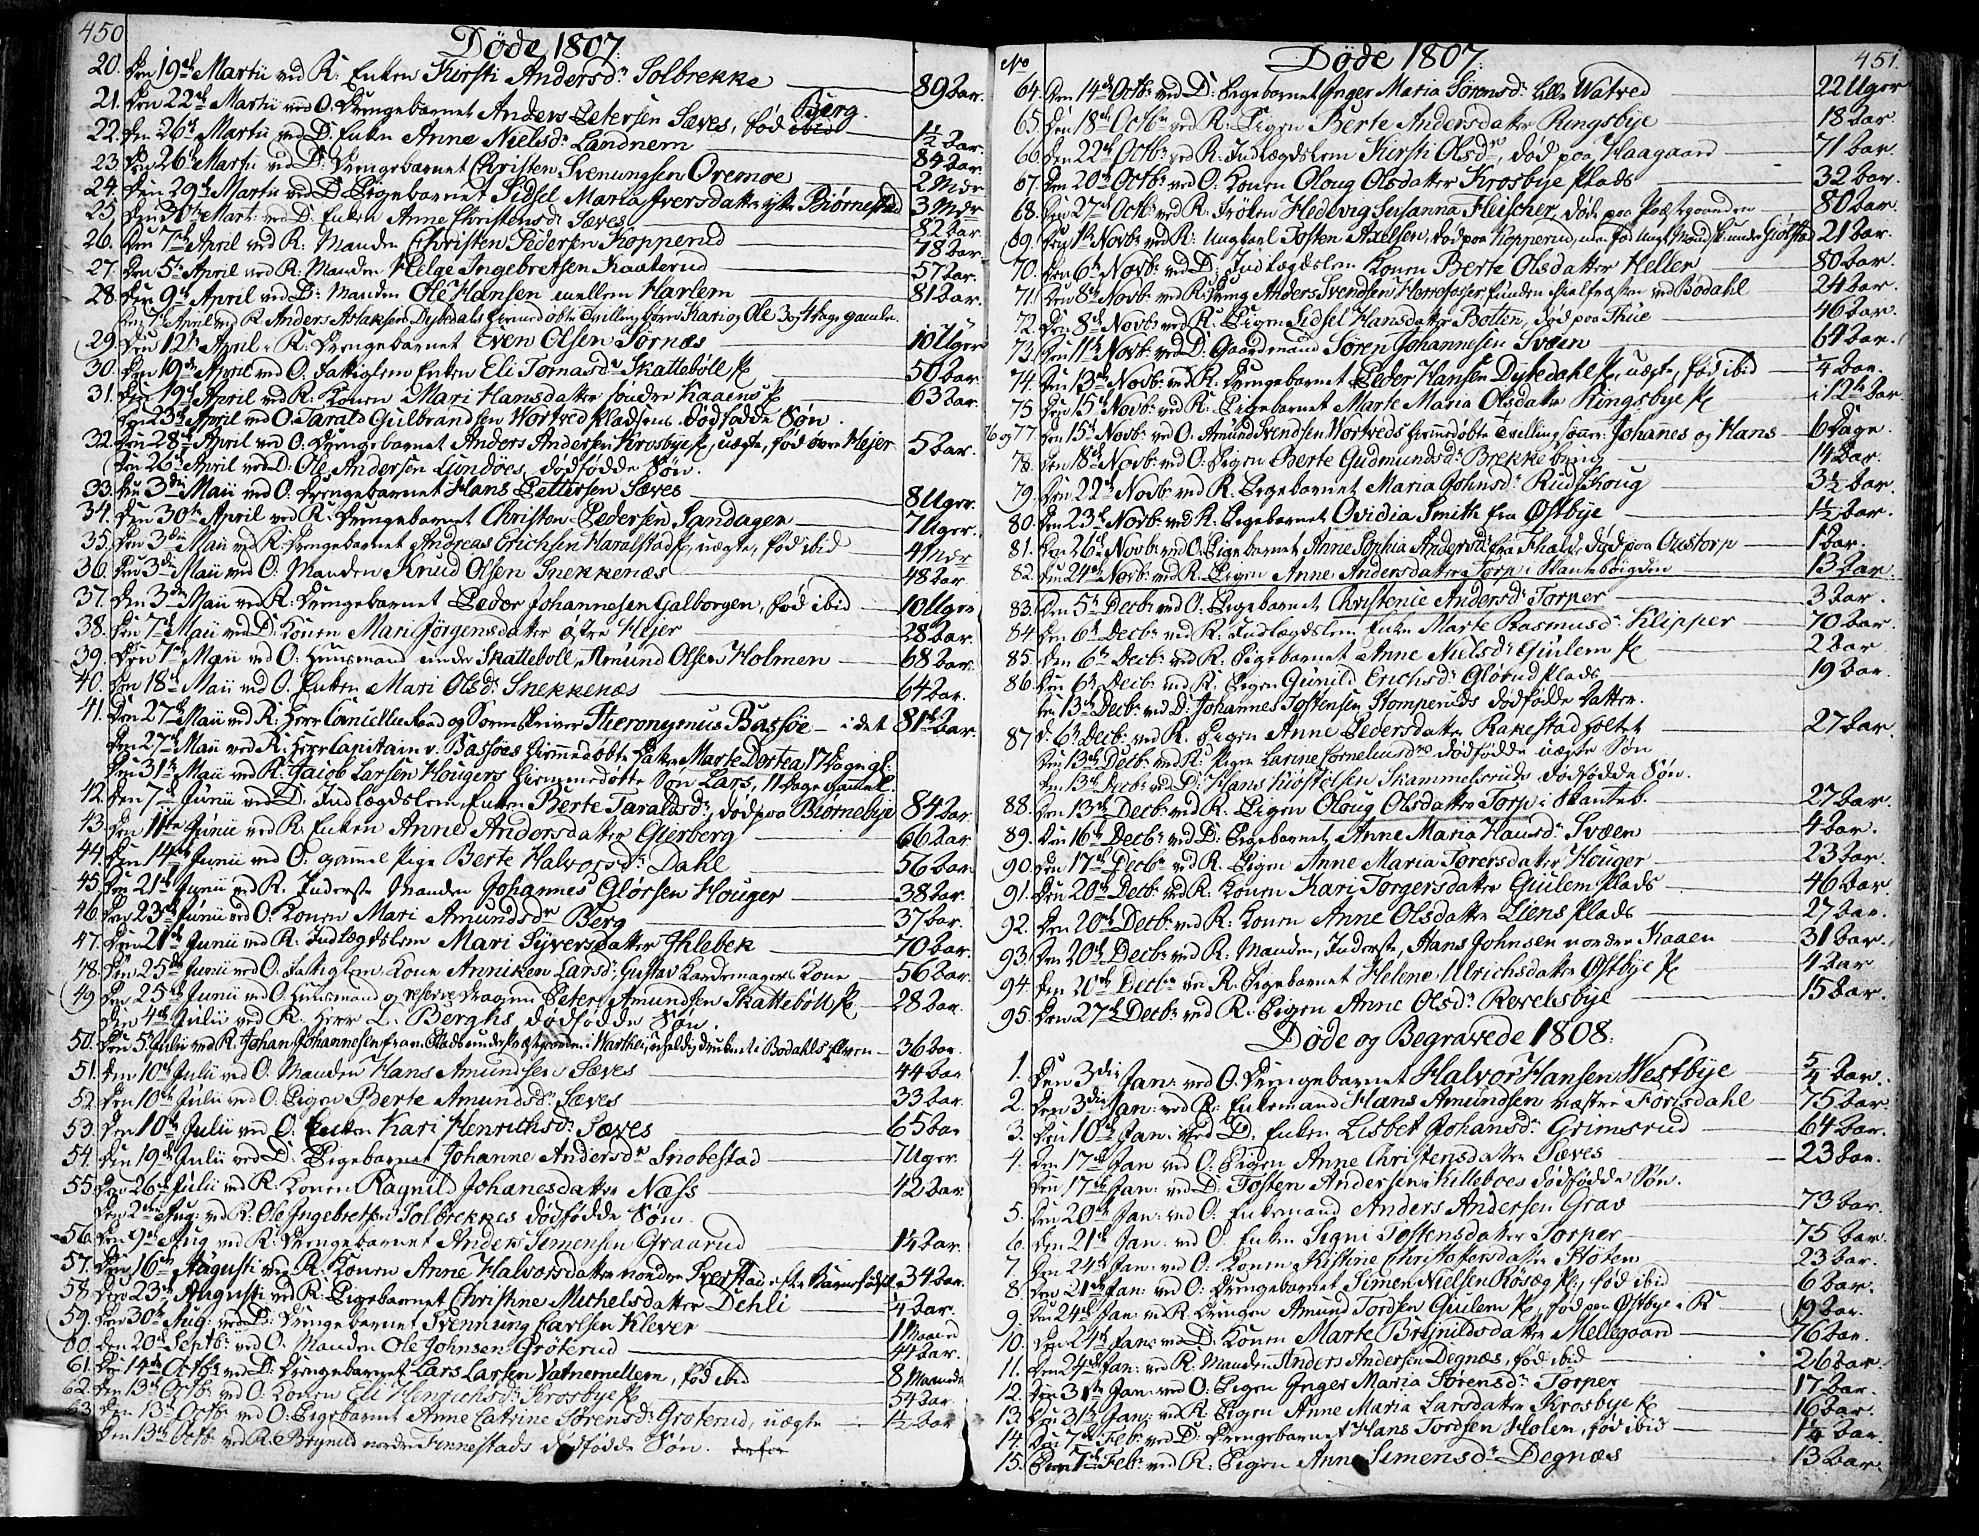 450
Døde 1807.
20. Den 19de Martii ved R: Enken Kirsti Andersdr Solbrekke 89 Aar.
21. Den 22de Martii ved O: Drengebarnet Anders Petersen Sæves, fød ibid Berg. 1½ Aar.
22. Den 26de Martii ved D: Enken Anne Nielsdr Landnem 84 Aar.
23. Den 26de Martii ved D: Drengebarnet Christen Svenungsen Oremoe 2 Mdr
24. Den 29de Martii ved D: Pigebarnet Sidsel Maria Iversdatter ytte Biørnestad 3 Mdr
25. Den 30te Mart: ved D: Enken Anne Christensdr Sæves 82 Aar.
26. Den 7de April ved R: Manden Christen Pedersen Kopperud 78 Aar.
27. Den 5te April ved R: Manden Helge Ingebretsen Kaaterud 57 Aar.
28. Den 9de April ved D: Manden Ole Hansen mellem Harlem 81 Aar.
Den April ved R Anders Aslaksens Dyledals hiemmedøbte Tvillingbørn Kari og Ole 3 og 4 dage gamle.
29. Den 12te April, R: Drengebarnet Even Olsen Sørnæs 10 Uger
30. Den 19de April ved O: Fattiglem Enken Eli Tomasdr Skattebøll Pl 50 Aar.
31. Den 19de April ved R: Konen Mari Hansdatter søndre Kaaens Pl 63 Aar.
Den 23de April ved O: Tarald Gulbrandsen Wortved Pladsens dødfødde Søn.
32. Den 28de April ved O: Drengebarnet Anders Andersen Krosbye Pl, uægte, fød øvre Hejer 5 Aar.
Den 26de April ved D: Ole Andersen Lundøes dødfødde Søn.
33. Den 3die Maii ved O: Drengebarnet Hans Pettersen Sæves 8 Uger.
34. Den 30te April ved R: Drengebarnet Christen Pedersen Sandagen 7 Uger.
35. Den 3die Maii ved R: Drengebarnet Andreas Erichsen Haralstad Pl, uægte, fød ibid 4 Mdr
36. Den 3die Maii ved O: Manden Knud Olsen Snekkenæs 48 Aar
37. Den 3die Maii ved R: Drengebarnet Peder Johannesen Galborgen, fød ibid 10 Uger
38. Den 7de Maii ved D: Konen Mari Jörgensdatter østre Hejer 28 Aar.
39. Den 7de Maii ved O: Huusmand under Skattebøll, Amund Olsen Holmen 68 Aar.
40. Den 18de Maii ved O. Enken Mari Olsdr Snekkenæs 64 Aar.
41. Den 27de Maii ved R: Herr Cancellieraad og Sorenskriver Hieronymus Bassøe i det 81de Aar.
Den 27de Maii ved R: Herr Capitain v. Bassøes hiemmedøbte Datter Marte Dortea, 17 Dage gl.
Den 31te Maii ved R: Jacob Larsen Hougers hiemmedøbte Søn Lars, 11 Dage gamel.
42. Den 7de Junii ved D: Indlægdslem Enken Berte Taraldsdr, død paa Biørnebye 84 Aar.
43. Den 11te Junii ved R: Enken Anne Andersdatter Gierberg 66 Aar.
44. Den 14de Junii ved O: gammel Pige Berte Halvorsdr Dahl 56 Aar
45. Den 21de Junii ved R. Inderste Manden Johannes Glørsen Houger 38 Aar.
46. Den 23de Junii ved O: Konen Mari Amundsdr Berg 37 Aar.
47. Den 21de Junii ved R: Indlægdslem Mari Syversdatter Ihlebek 70 Aar.
48. Den 25de Junii ved O: Fattiglem Kone Anniken Larsdr, Gustav Kardemagers Kone 56 Aar.
49. Den 25de Junii ved O: Huusmand og reserve Dragun Peter Amundsen Skattebøll Pl 28 Aar.
Den 4de Julii ved R: Herr L. Berghs dødfødde Søn.
50. Den 5te Julii ved R. Johan Johannesen fra Plads under Præstegaarden i Warthei, druknet i Bodahls Elven 36 Aar.
51. Den 10de Julii ved O: Manden Hans Amundsen Sæves 44 Aar
52. Den 10de Julii ved O: Pigen Berte Amundsdr Sæves 33 Aar.
53. Den 10de Julii ved O: Enken Kari Henrichsdr Sæves 65 Aar
54. Den 19de Julii ved D: Pigebarnet Johanne Andersdr Snobestad 7 Uger.
55. Den 26de Julii ved R: Konen Ragnild Johanesdatter Næss 42 Aar.
Den 2den Aug: ved R: Ole Ingebretsen Solbrekkes dødfødde Søn.
56. Den 9de Aug ved R: Drengebarnet Anders Simensen Graarud 1¼ Aar.
57. Den 16de Augusti ved R: Konen Anne Halvorsdatter nordre Sverstad efter Barnefødsel 34 Aar.
58. Den 23de Augusti ved R: Pigebarnet Christine Michelsdatter Dehli ¼ Aar.
59. Den 30te Aug: ved D: Drengebarnet Svennung Carlsen Klever 1 Maaned
60. Den 20de Septb: ved O: Manden Ole Johnsen Grøterud 44 Aar.
61. Den 14de Octbr ved D: Drengebarnet Lars Larsen Vatnemellem, fød ibid 8 Maaneder
62. Den 13de Octbr ved O: Konen Eli Henrichsdr Krosbye Pl 54 Aar.
63. Den 13de Octbr ved O: Pigebarnet Anne Catrine Sørensdr Groterud, uægte 1½ Aar
Den 13de Octbr ved R: Brynild nordre Finnestads dødfødde Søn.
No Døde 1807. 451.
64. Den 14de Octbr ved D: Pigebarnet Inger Maria Sörensdr lille Watved 22 Uger
65. Den 18de Octbr ved R: Pigen Berte Andersdatter Ringsbye 18 Aar.
66. Den 22de Octbr ved R: Indlægdslem Kirsti Olsdr, død paa Haagaard 71 Aar.
67. Den 20de Octbr ved O: Konen Oloug Olsdatter Krosbye Plads 32 Aar.
68. Den 27de Octbr ved R: Frøken Hedevig Susanna Fleischer, døde paa Præstegaarden 80 Aar.
69. Den 1te Novbr ved R: Ungkarl Tosten Axelsen, død paa Kopperud, under Giølstad 21 Aar.
70. Den 6te Novbr ved D: Indlægdslem Konen Berte Olsdatter Heller 80 Aar.
71. Den 8de Novbr ved R: Dreng Anders Svendsen Horrofosser funden ihielfrosen ved Bodahl 24 Aar.
72. Den 8de Novbr ved R: Pigen Sidsel Hansdatter Botten, død paa Thue 46 Aar.
73. Den 11te Novbr ved D: Gaardmand Søren Johannesen Svæen 64 Aar.
74. Den 13de Novbr ved R: Drengebarnet Peder Hansen Dyledahl Pl, uægte, fød ibid ¼ Aar.
75. Den 15de Novbr ved R: Pigebarnet Marte Maria Olsdatter Ringsbye Pl i 12te Aar
76 og 77. Den 15de Novbr ved O: Amund Svendsen Wortveds hiemmedøbte Tvillingsønner Johannes og Hans 6 Dage.
78. Den 18de Novbr ved O: Pigen Berte Gudmundsdr Brekkebøing 14 Aar.
79. Den 22de Novbr ved R: Pigebarnet Maria Johnsdr Rudskoug 3½ Aar.
80. Den 23de Novbr ved R: Pigebarnet Ovidia Smith fra Østbye 1½ Aar.
81. Den 26de Novbr ved O: Pigebarnet Anne Sophia Andersdr fra Fhald, død paa Oustorp 1 Aar.
82. Den 24de Novbr ved R: Pigen Anne Andersdatter Torp i Skantebøigden 13 Aar.
83. Den 5te Decbr ved O: Pigebarnet Christence Andersdr Torper 3 Aar.
84. Den 6te Decbr ved R: Indlægdslem Enken Marte Rasmusdr Klipper 70 Aar.
85. Den 6te Decbr ved R: Pigebarnet Anne Nielsdr Giulem Pl 2 Aar
86. Den 6te Decbr ved R: Pigen Gunild Erichsdr Glørud Plads 19 Aar
Den 13de Decbr ved D: Johannes Tostensen Stomperuds dødfødde Datter.
87. d. 6te Decbr ved R. Pigen Anne Pedersdatter Rakestad Feltet 27 Aar.
Den 13de Decbr ved R: Pigen Larine Corneliusdrs dødfødde uægte Søn
Den 13de Decbr ved D: Hans Kiøstelsen Skammelsruds dødfødde Søn.
88. Den 13de Decbr ved R: Pigen Oloug Olsdatter Torp i Skanteb. 27 Aar.
89. Den 16de Decbr ved D: Pigebarnet Anne Maria Hansdr Svæen 4 Aar.
90. Den 17de Decbr ved R. Pigen Anne Maria Torersdatter Houger 23 Aar.
91. Den 20de Decbr ved R: Konen Kari Torgersdatter Giulem Plads 46 Aar.
92. Den 20de Decbr ved R: Konen Anne Olsdatter Liens Plads 27 Aar.
93. Den 20de Decbr ved R: Manden, Inderste, Hans Johnsen nordre Kaaen 31 Aar.
94. Den 20de Decbr ved R: Pigebarnet Helene Ulrichsdatter Østbye Pl 4 Aar
95. Den 27de Decbr ved R: Pigen Anne Olsdr Revelsbye 15 Aar.
Døde og Begravede 1808.
1. Den 3die Jan: ved O: Drengebarnet Halvor Hansen Westbye 5/4 Aar.
2. Den 3die Jan: ved R: Enkemand Hans Amundsen vestre Forsdahl 75 Aar.
3. Den 10de Jan: ved D: Enken Lisbet Johansdr Grimsrud 64 Aar.
4. Den 17de Jan ved O: Pigen Anne Christensdatter Sæves 23 Aar.
Den 17de Jan: ved D: Tosten Andersen Killeboes dødfødde Søn.
5. Den 20de Jan: ved O: Enkemand Anders Andersen Grav 73 Aar.
6. Den 21de Jan: ved O Enken Signi Tostensdatter Torper 75 Aar.
7. Den 24de Jan: ved O: Konen Kistine Christofersdatter Kloten 23 Aar.
8. Den 21de Jan: ved O: Drengebarnet Simen Nielsen Røsæg Pl, fød ibid 6 Aar.
9. Den 24de Jan: ved R: Drengen Amund Tordsen Giulem Pl, fød paa Østbye i R 19 Aar.
10. Den 24de Jan: ved D: Konen Marte Brynildsdatter Mellegaard 76 Aar.
11. Den 24de Jan: ved R: Manden Anders Andersen Degnæs, fød ibid 26 Aar.
12. Den 31te Jan: ved O: Pigen Inger Maria Sørensdr Torper 17 Aar.
13. Den 31te Jan: ved R: Pigen Anne Maria Larsdatter Krosbye Pl 16 Aar.
14. Den 7de Feb: ved D: Drengebarnet Hans Tordsen Holen, fød ibid 1¼ Aar.
15. Den 7de Feb: ved R: Pigen Anne Simensdr Degnæs 13 Aar.